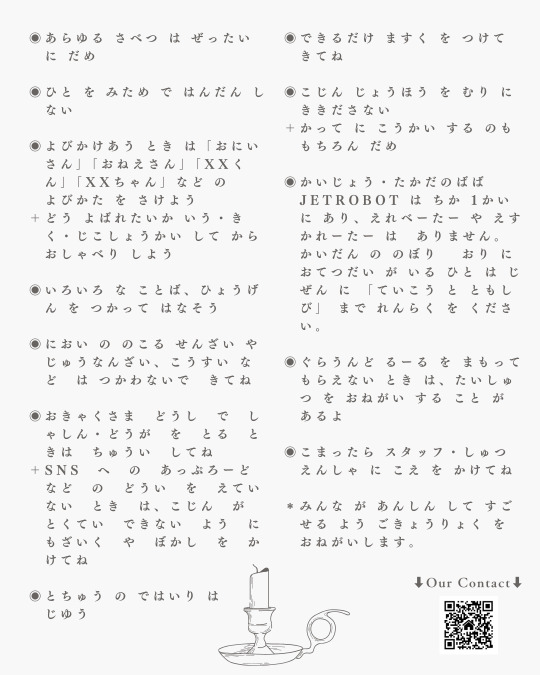 ◉あらゆる さべつ は ぜったい
に だめ
◉ひと を みため で はんだん し
ない
◉よびかけあう とき は「おにい
さん」「おねえさん」「XXく
ん」「XXちゃん」など の
よびかた を さけよう
+どう よばれたいか いう・き
く・じこしょうかい して から
おしゃべり しよう
◉いろいろ な ことば、ひょうげ
ん を つかって はなそう
◉におい の のこる せんざい や
じゅうなんざい、こうすい な
ど は つかわないで きてね
◉おきゃくさま どうし で し
ゃしん・どうが を とる と
きは ちゅうい してね
+SNS へ の あっぷろーど
など の どうい を えてい
ない とき は、こじん が
とくてい できない よう に
もざいく や ぼかし を か
けてね
◉とちゅう の ではいり は
じゆう
◉できるだけ ますく を つけて
きてね
◉こじん じょうほう を むり に
ききださない
+かって に こうかい する のも
もちろん だめ
◉かいじょう・たかだのばば
JETROBOT は ちか 1かい
に あり、えれべーたー や えす
かれーたー は ありません。
かいだん の のぼり おり に
おてつだい が いる ひと は じ
ぜん に 「ていこう と ともし
び」 まで れんらく を くださ
い。
◉ぐらうんど るーる を まもって
もらえない とき は、たいしゅ
つ を おねがい する こと が
あるよ
◉こまったら スタッフ・しゅつ
えんしゃ に こえ を かけてね
*みんな が あんしん して すご
せる よう ごきょうりょく を
おねがいします。
⬇Our Contact⬇